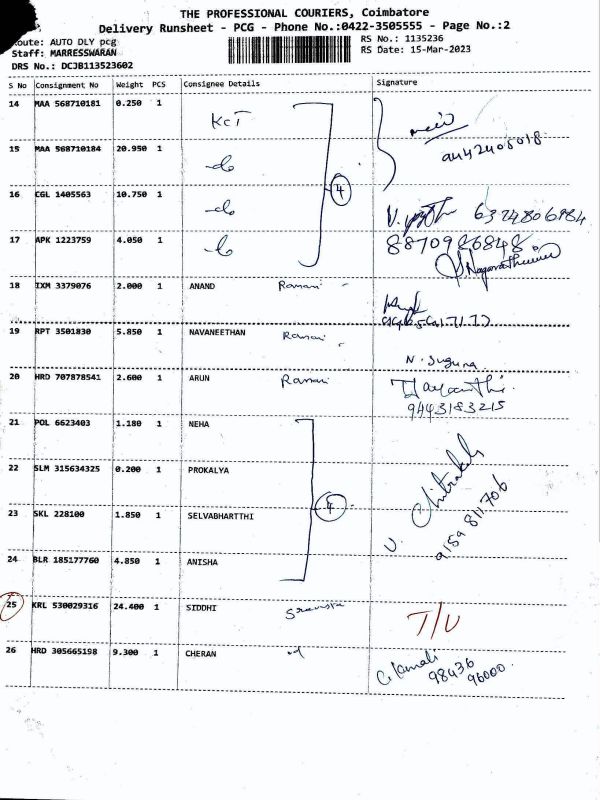 THE PROFESSIONAL COURIERS, Coimbatore
Delivery Runsheet - PCG - Phone No.:0422-3505555 - Page No.:2
Route: AUTO DLY pcg
Staff: MARRESSWARAN
DRS No.: DCJB113523602
RS No.: 1135236
RS Date: 15-Mar-2023
S No Consignment No Weight PCS Consignee Details Signature
14 MAA 568710181 0.250 1 KCT
15 MAA 568710184 20.950 1 do
16 CGL 1405563 10.750 1 do
4
V. 6374806984
17 APK 1223759 4.050 1 do
8870986848
18 IXM 3379076 2.000 1 ANAND Ramani
19 RPT 3501830 5.850 1 NAVANEETHAN Ramani
N. Suguna
20 HRD 707878541 2.600 1 ARUN Ramani
9443183215
21 POL 6623403 1.180 1 NEHA
22 SLM 315634325 0.200 1 PROKALYA
23 SKL 228100 1.850 1 SELVABHARTTHI
4
V. Chitrakala
9159 811706
24 BLR 185177760 4.850 1 ANISHA
25 KRL 530029316 24.400 1 SIDDHI
T/U
26 HRD 305665198 9.300 1 CHERAN
98436
96000